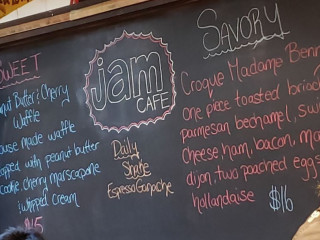 SWEET
Peanut Butter & Cherry
Waffle
house made waffle
topped with peanut butter
cookie, cherry marscapone
& whipped cream
$15
jam
CAFE
Daily
Shake
Espresso Ganache
SAVORY
Croque Madame Benn
one piece toasted brioch
parmesan bechamel, swi
cheese, ham, bacon, ma
dijon, two poached eggs
hollandaise $16